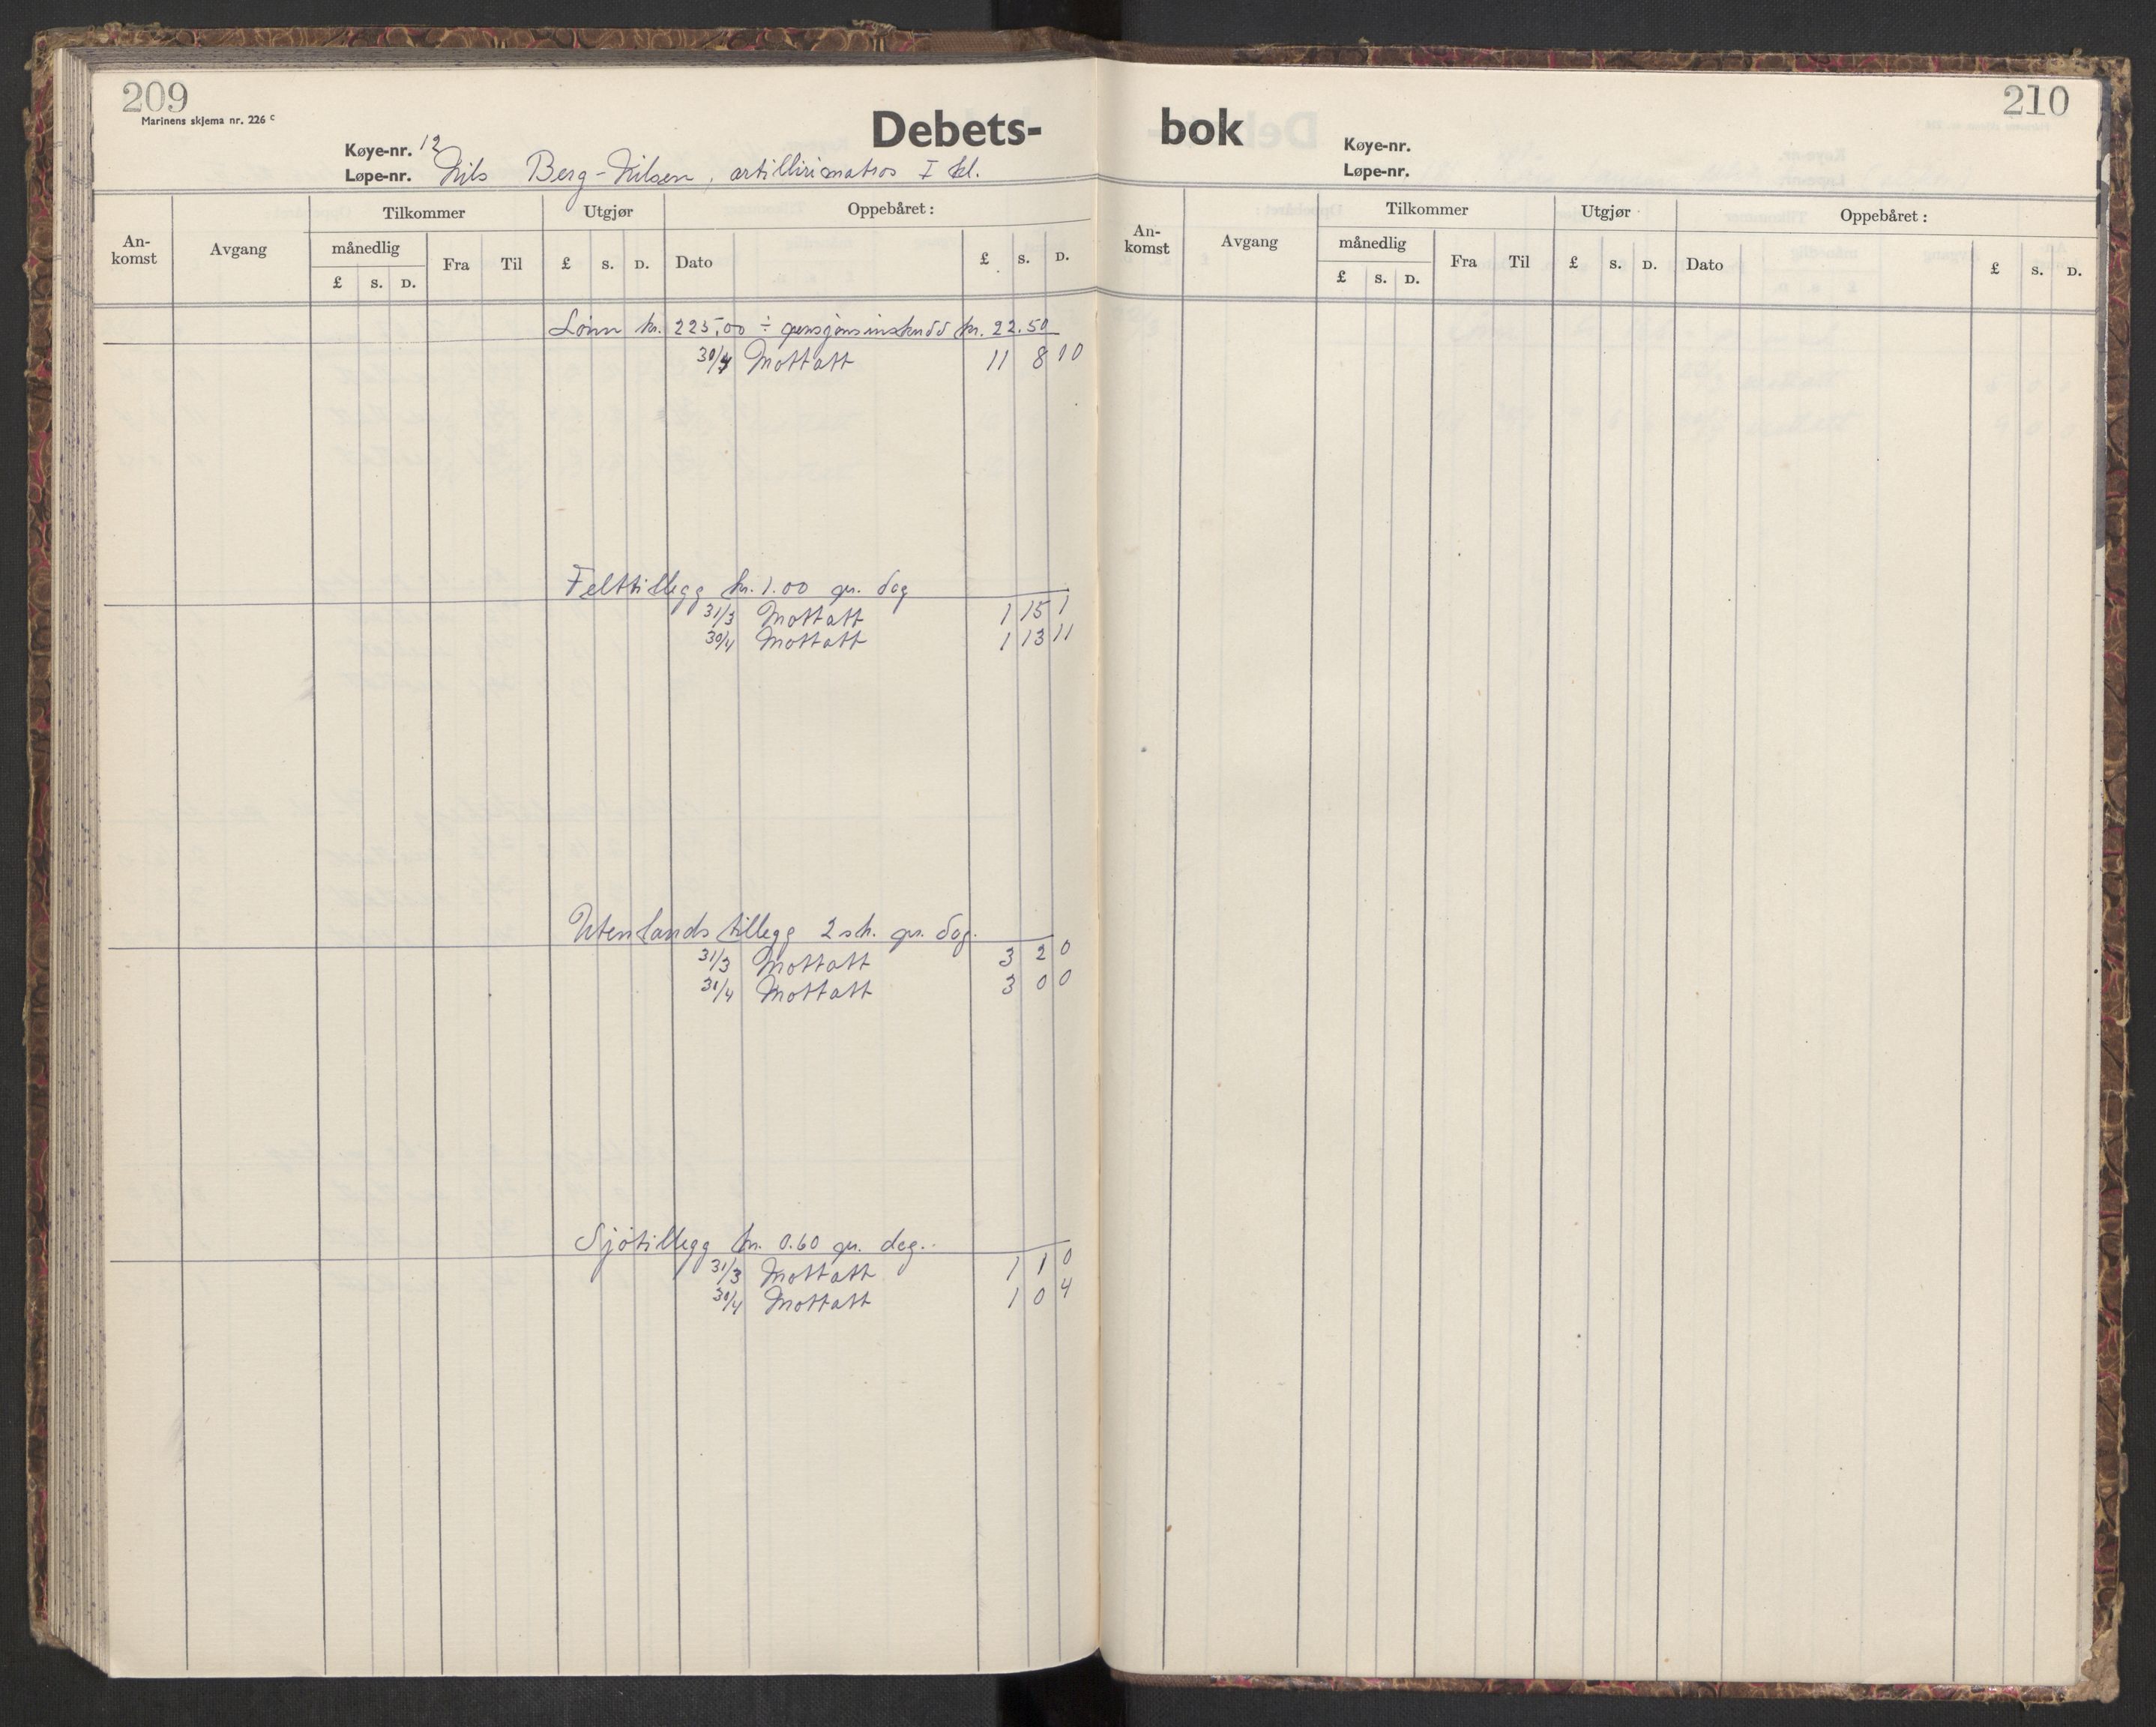 209
Marinens skjema nr. 226 c
Debets-
Køye-nr. 12
Løpe-nr. Nils Berg-Nilsen, artillerimatros I kl.
Tilkommer Utgjør Oppebåret:
An-komst Avgang månedlig Fra Til £ s. D. Dato £ s. D.
£ s. D.
Lønn kr. 225,00 ÷ pensjonsinskudd kr. 22.50
30/4 Mottatt 11 8 10
Felttillegg kr. 1.00 pr. dag
31/3 Mottatt 1 15 1
30/4 Mottatt 1 13 11
Utenlands tillegg 2 sh. pr. dag.
31/3 Mottatt 3 2 0
31/4 Mottatt 3 0 0
Sjøtillegg kr. 0.60 pr. dag.
31/3 Mottatt 1 1 0
30/4 Mottatt 1 0 4
210
bok
Køye-nr.
Løpe-nr.
Tilkommer Utgjør Oppebåret:
An-komst Avgang månedlig Fra Til £ s. D. Dato £ s. D.
£ s. D.